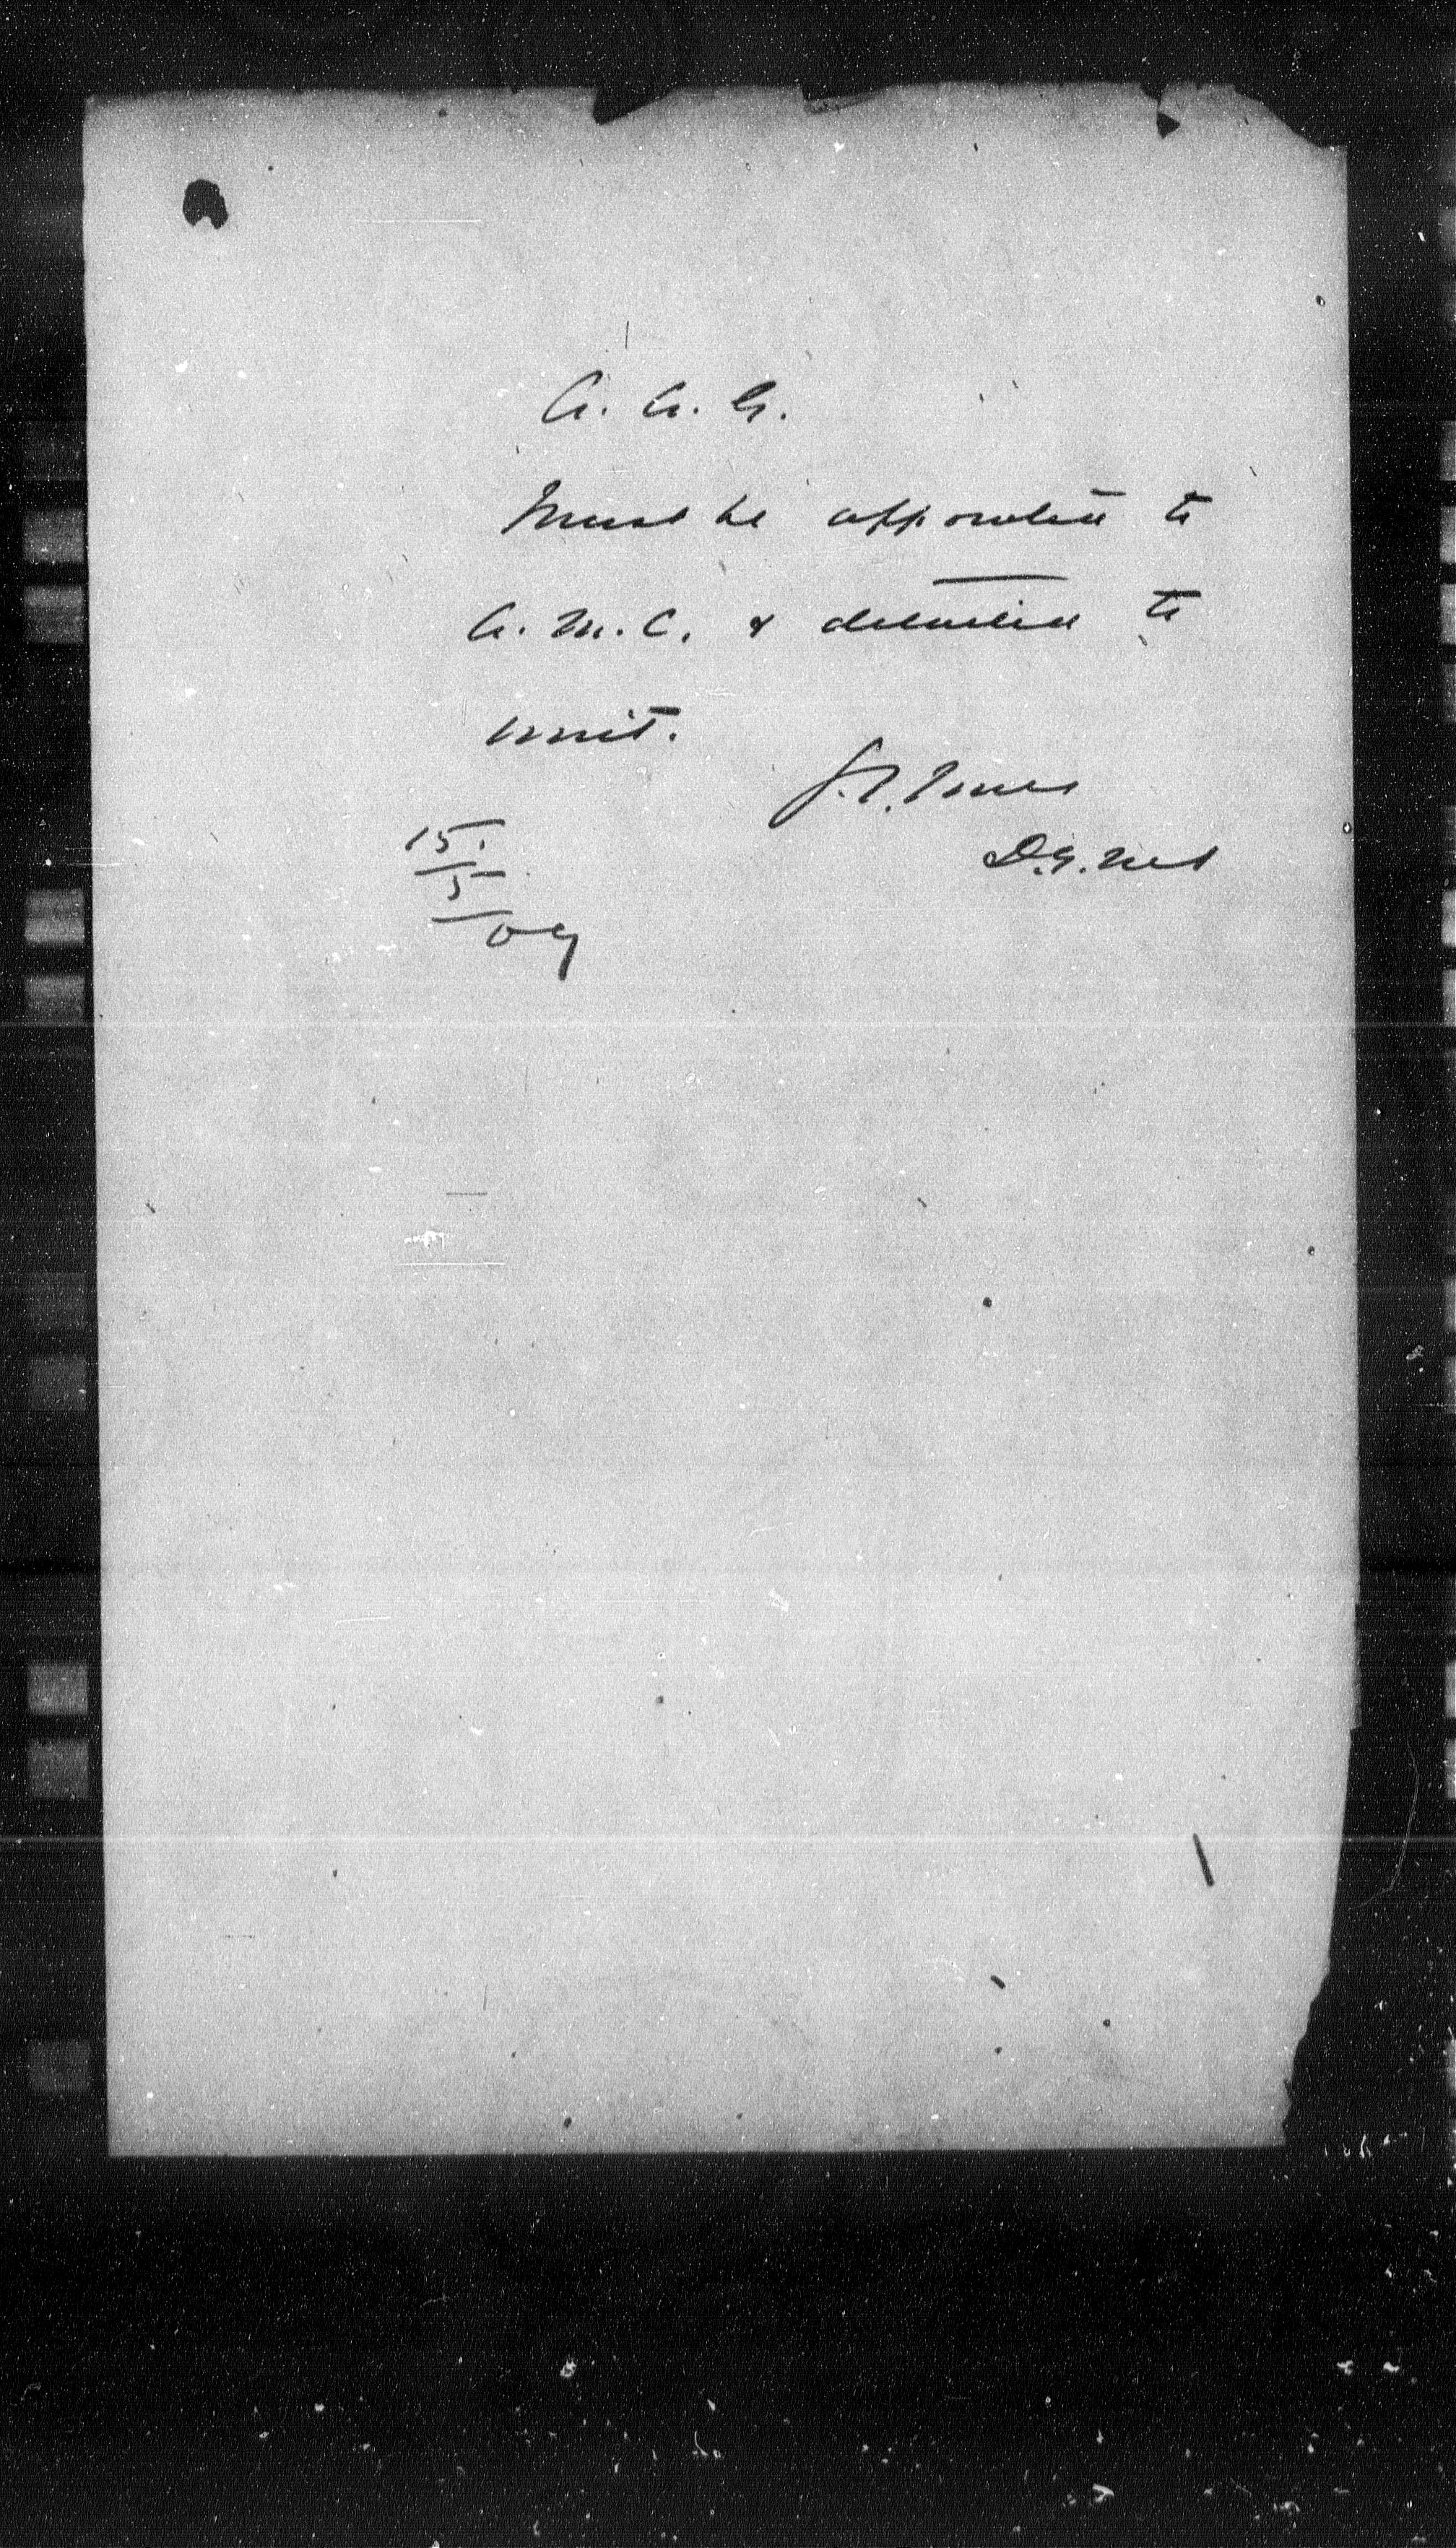 A. A. G.
Must be appointed to
A. M. C. & detailed to
unit.
G. C. Jones
D. G. M. S
15.
5
09